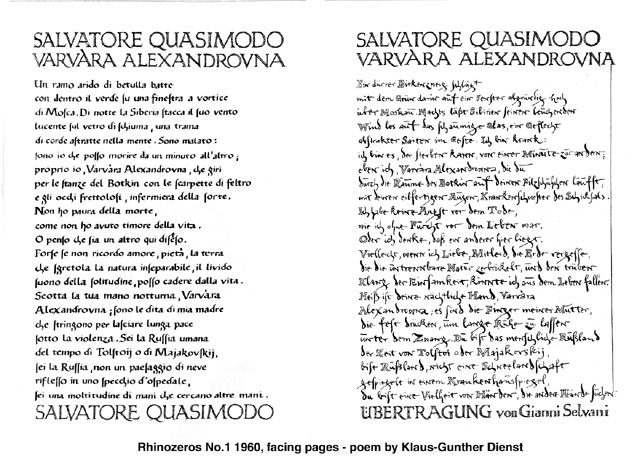 SALVATORE QUASIMODO
VARVÀRA ALEXANDROVNA
Un ramo arido di betulla batte
con dentro il verde su una finestra a vortice
di Mosca. Di notte la Siberia stacca il suo vento
lucente sul vetro di schiuma, una trama
di corde astratte nella mente. Sono malato:
sono io che posso morire da un minuto all'altro;
proprio io, Varvàra Alexandrovna, che giri
per le stanze del Botkin con le scarpette di feltro
e gli occhi frettolosi, infermiera della sorte.
Non ho paura della morte,
come non ho avuto timore della vita.
O penso che sia un altro qui disteso.
Forse se non ricordo amore, pietà, la terra
che sgretola la natura inseparabile, il livido
suono della solitudine, posso cadere dalla vita.
Scotta la tua mano notturna, Varvàra
Alexandrovna; sono le dita di mia madre
che stringono per lasciare lunga pace
sotto la violenza. Sei la Russia umana
del tempo di Tolstoij o di Majakovskij,
sei la Russia, non un paesaggio di neve
riflesso in uno specchio d'ospedale,
sei una moltitudine di mani che cercano altre mani.
SALVATORE QUASIMODO
SALVATORE QUASIMODO
VARVÀRA ALEXANDROVNA
Ein dürrer Birkenzweig schlägt
mit dem Grün darin auf ein Fenster abgründig hoch
über Moskau. Nachts läßt Sibirien seinen leuchtenden
Wind los auf das schaumige Glas, ein Geflecht
abstrakter Saiten im Geiste. Ich bin krank:
ich bin es, der sterben kann, von einer Minute zur andern;
eben ich, Varvàra Alexandrovna, die du
durch die Räume des Botkin auf deinen Filzschuhen läufst,
mit deinen eilfertigen Augen, Krankenschwester des Schicksals.
Ich habe keine Angst vor dem Tode,
wie ich ohne Furcht vor dem Leben war.
Oder ich denke, daß ein anderer hier liegt.
Vielleicht, wenn ich Liebe, Mitleid, die Erde vergesse,
die die untrennbare Natur zerbröckelt, und den trüben
Klang der Einsamkeit, könnte ich aus dem Leben fallen.
Heiß ist deine nächtliche Hand, Varvàra
Alexandrovna; es sind die Finger meiner Mutter,
die fest drücken, um lange Ruhe zu lassen
unter dem Zwang. Du bist das menschliche Rußland
der Zeit von Tolstoi oder Majakovskij,
bist Rußland, nicht eine Schneelandschaft
gespiegelt in einem Krankenhausspiegel,
du bist eine Vielheit von Händen, die andre Hände suchen.
ÜBERTRAGUNG von Gianni Selvani
Rhinozeros No.1 1960, facing pages - poem by Klaus-Gunther Dienst